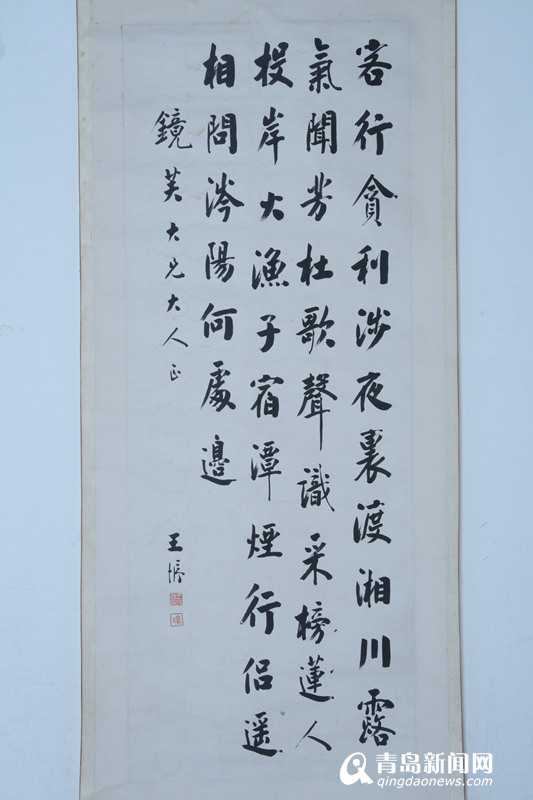 客行貪利涉夜裏渡湘川露
氣聞芳杜歌聲識采榜蓮人
投岸火漁子宿潭煙行侶遥
相問涔陽何處邊
鏡芙大兄大人正
王
青岛新闻网
qingdaonews.com